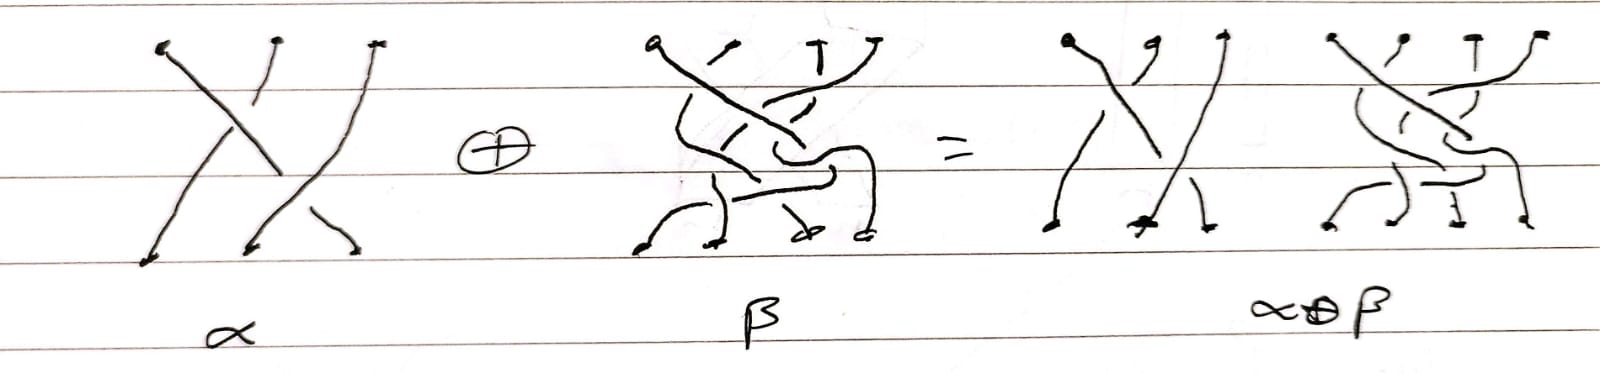 ⊕ =
α β α⊕β